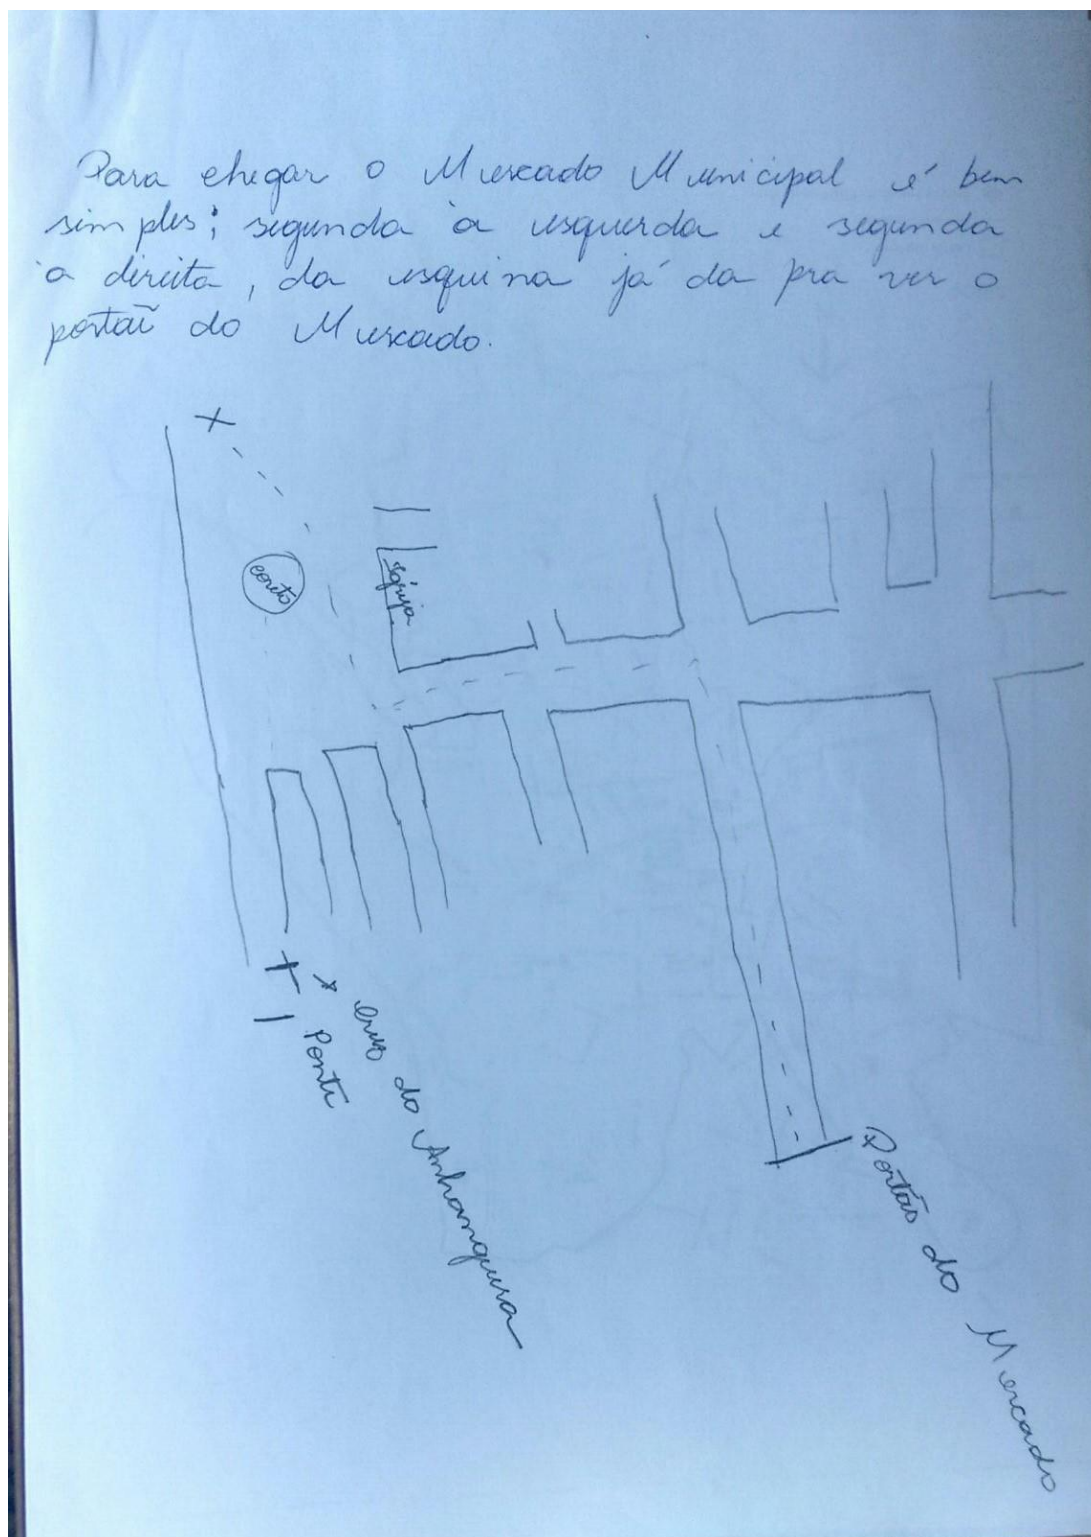 Para chegar o Mercado Municipal é bem
simples; segunda à esquerda e segunda
à direita, da esquina já da pra ver o
portão do Mercado.
coreto
Igreja
Ponte
Cruz do Anhanguera
Portão do Mercado